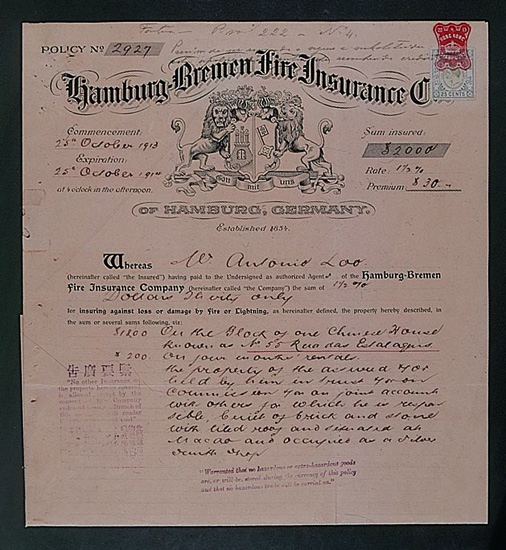 POLICY Nº 2927
Hamburg-Bremen Fire Insurance C
Commencement:
25th October 1913
Expiration:
25th October 1914
at 4 o'clock in the afternoon.
Sum insured:
$2000
Rate 1½ %
Premium $ 30.-
HONG KONG
25 CENTS
mit uns
OF HAMBURG, GERMANY.
Established 1854.
Whereas Mr Antonio Loo
(hereinafter called "the Insured") having paid to the Undersigned as authorized Agents of the Hamburg-Bremen
Fire Insurance Company (hereinafter called "the Company") the sum of 1½ %
Dollars Thirty only
for insuring against loss or damage by Fire or Lightning, as hereinafter defined, the property hereby described, in
the sum or several sums following, viz:
$1800 On the Block of one Chinese House
known as Nº 55 Rua das Estalagens
$200. On four months' rentals.
the property of the assured &/or
held by him in trust &/or on
commission &/or on joint account
with others for which he is respon
sible, Built of brick and stone
with tiled roof and situated at
Macao and occupied as a Silver
Smith Shop
"No other Insurance
"Warranted that no hazardous or extra-hazardous goods
are, or will be, stored during the currency of this policy
and that no hazardous trade will be carried on."